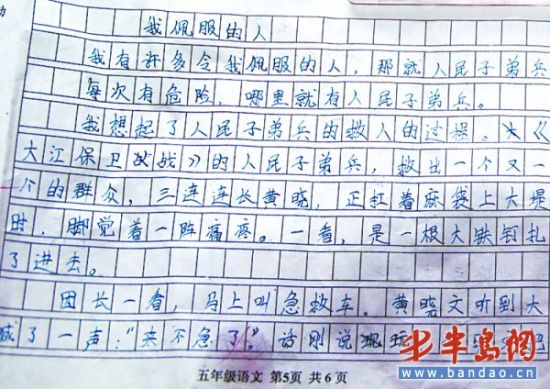 我佩服的人
我有许多令我佩服的人，那就人民子弟兵
每次有危险，哪里就有人民子弟兵。
我想起了人民子弟兵的救人的过程。《
大江保卫战》的人民子弟兵，救出一个又一
个的群众，三连连长黄晓，正扛着麻袋上大堤
时，脚觉着一阵痛疼。一看，是一根大铁钉扎
了进去。
团长一看，马上叫急救车。黄晓文听到大
喊了一声："来不急了。"话刚说
五年级语文 第5页 共6页
半岛网
www.bandao.cn